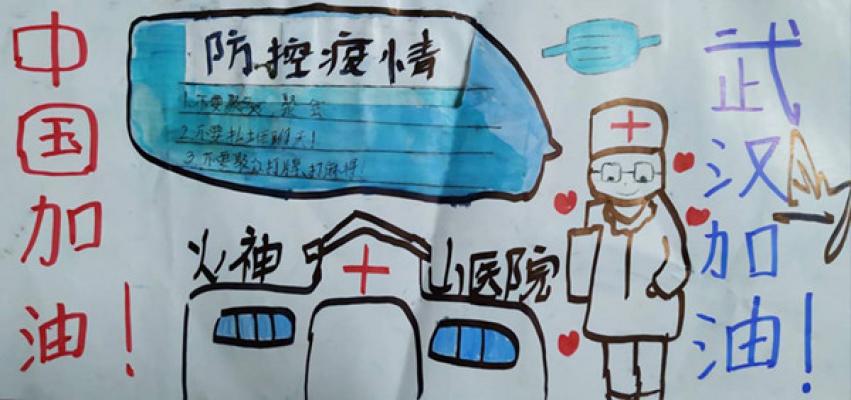 中国加油！
防控疫情
1.不要聚会，聚会
2.不要扎堆聊天！
3.不要聚众打牌、打麻将！
火神山医院
武汉加油！